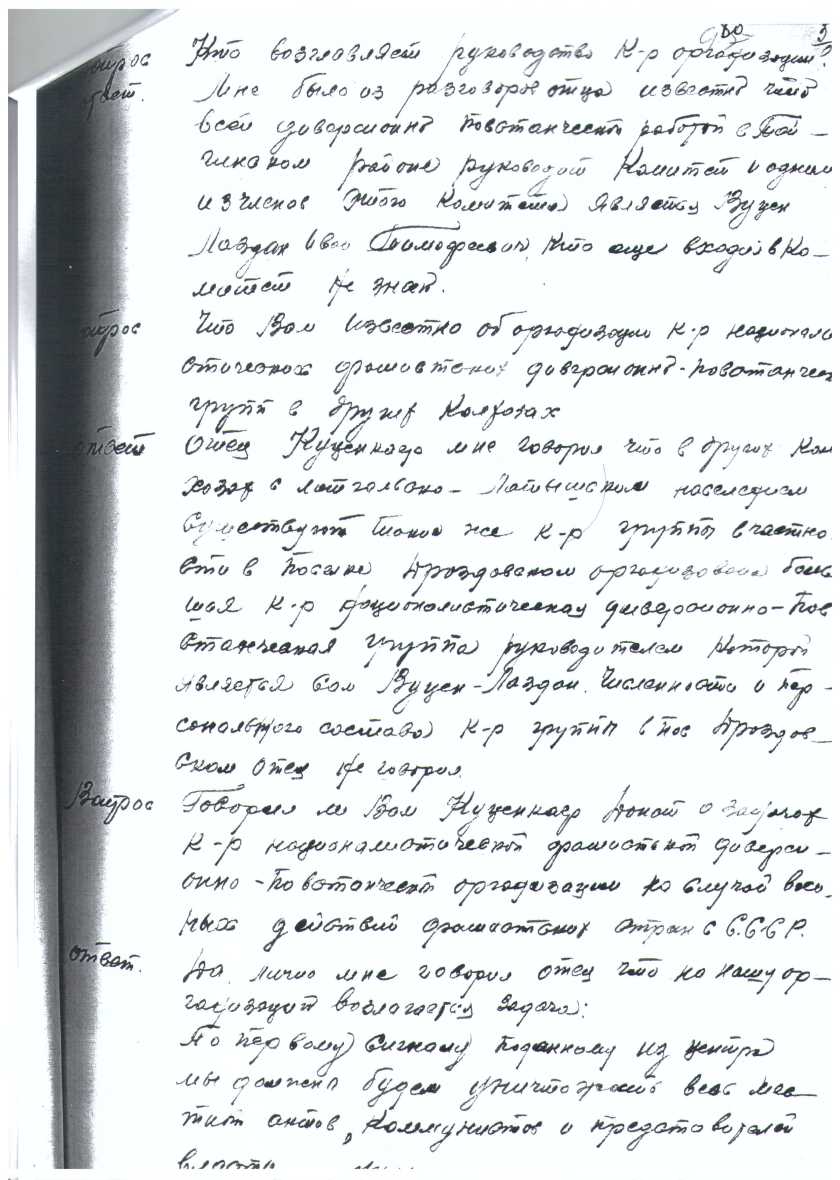 80 5
Вопрос Кто возглавляет руководство К-р организации?
ответ. Мне было из разговоров отца известно что
всей диверсионно повстанческой работой в Тай-
гинском районе руководит комитет и одним
из членов этого комитета является Вуцен
Лаздан Иван Тимофеевич, кто еще входит в ко-
митет не знаю.
Вопрос Что Вам известно об организации к-р национали
стических фашистских диверсионно-повстанческ
групп в других колхозах
ответ Отец Куценкаср мне говорил что в других кол
хозах с латгальско-Латышским населением
существуют такие же к-р группы в частно
сти в поселке Дроздовском организована боль
шая к-р националистическая диверсионно-пов
станческая группа руководителем которой
является сам Вуцен-Лаздан. Численности и пер-
сонального состава к-р группы в пос Дроздов-
ском отец не говорил.
Вопрос Говорил ли Вам Куценкаср Донат о задачах
к-р националистической фашистской диверси-
онно-повстанческой организации на случай воен-
ных действий фашистских стран с С.С.С.Р.
ответ. Да лично мне говорил отец что на нашу ор-
ганизацию возлагается задача:
По первому сигналу поданному из центра
мы должны будем уничтожать весь мес-
тный актив, коммунистов и представителей
власти